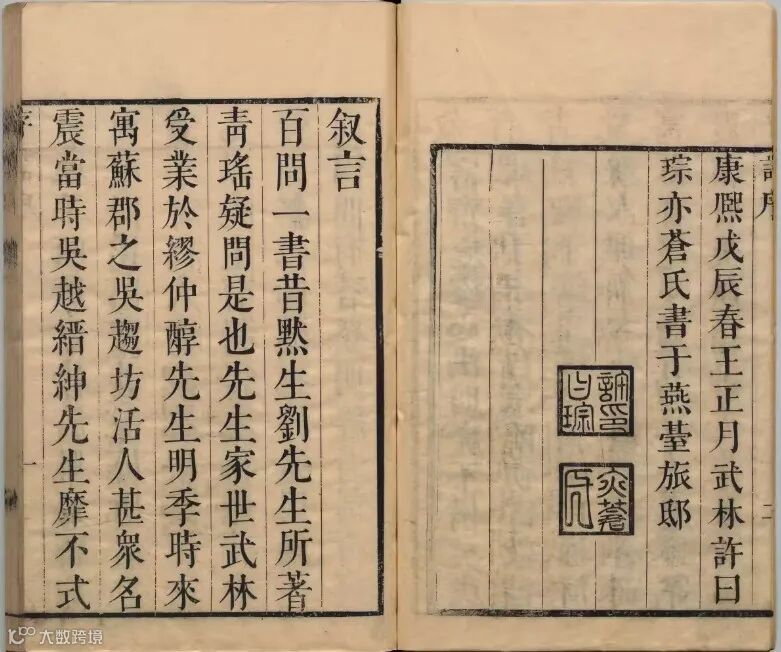 康熙戊辰春王正月武林許曰
琮亦蒼氏書于燕臺旅邸
許印曰琮
叙言
百問一書昔黙生劉先生所著
青瑤疑問是也先生家世武林
受業於繆仲醇先生明季時來
寓蘇郡之吳趨坊活人甚衆名
震當時吳越縉紳先生靡不式
一
大数跨境